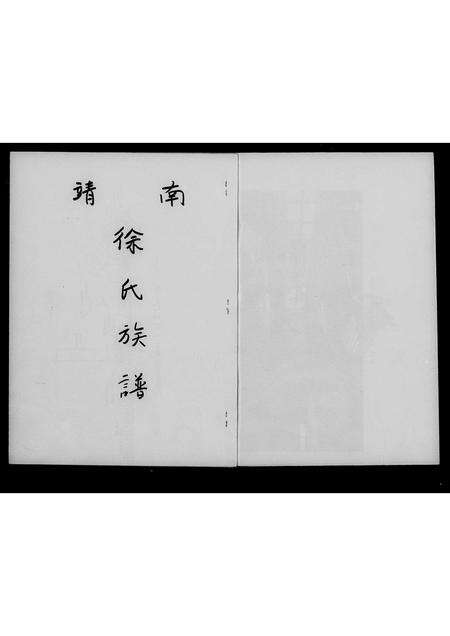 南靖
徐氏族譜